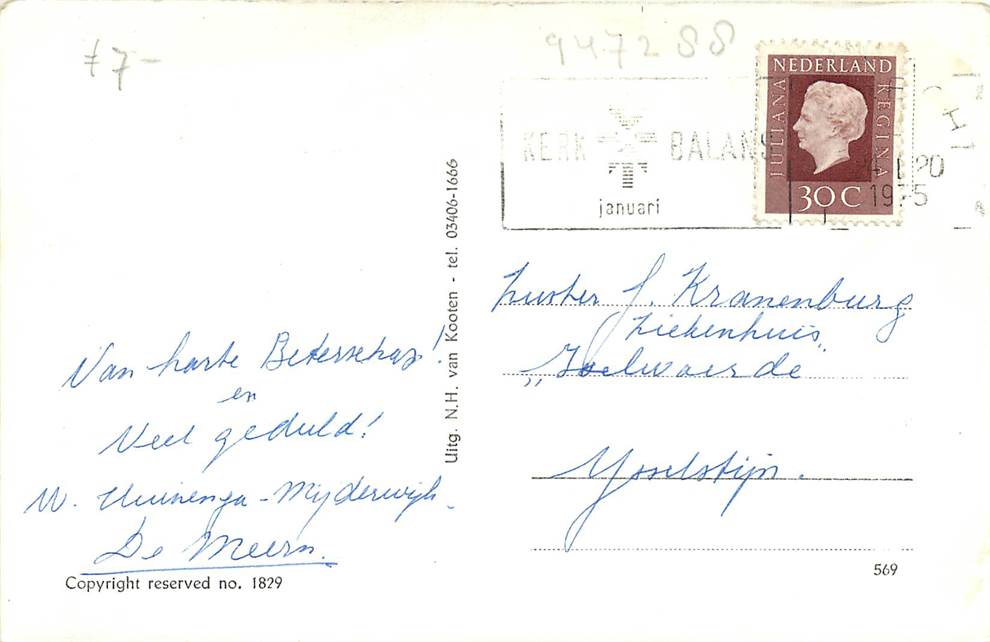 €7-
944288
NEDERLAND
JULIANA
REGINA
30 C
KERK BALANS
januari
1975
Van harte Beterschap!
en
Veel geduld!
W. Huizenga-Mijderwijk.
De Meern.
Copyright reserved no. 1829
Uitg. N.H. van Kooten - tel. 03406-1666
Zuster J. Kranenburg
Ziekenhuis
„Isselwaerde"
Ysselstijn.
569